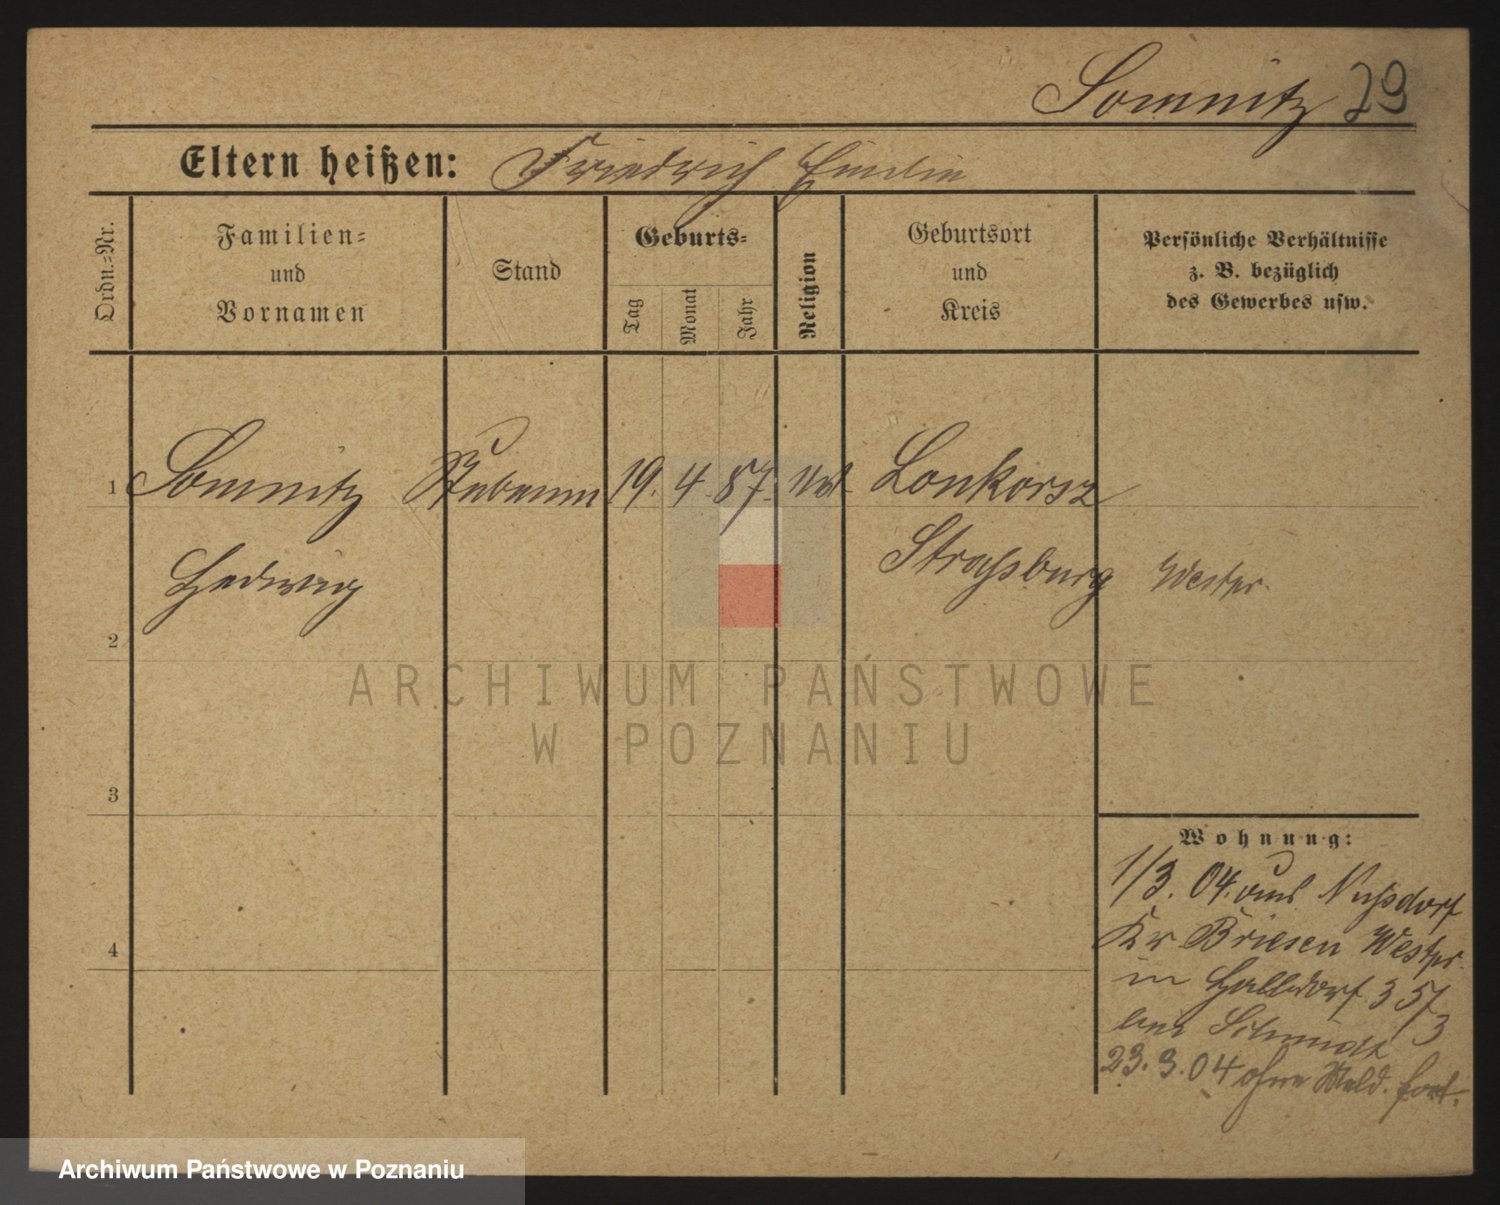 Somnitz 29
Eltern heißen: Friedrich Emilie
Ordn.-Nr.
Familien-
und
Vornamen
Stand
Geburts-
Tag
Monat
Jahr
Religion
Geburtsort
und
Kreis
Persönliche Verhältnisse
z. B. bezüglich
des Gewerbes usw.
1 Somnitz Stubenm 19. 4. 87. Lonkorsz
Hedwig Strassburg Westpr.
2
3
4
Wohnung:
1/3. 04. aus Nussdorf
Kr Briesen Westpr.
in 3 57/3
bei Schmidt
23. 3. 04 ohne Meld. fort.
ARCHIWUM PAŃSTWOWE
W POZNANIU
Archiwum Państwowe w Poznaniu